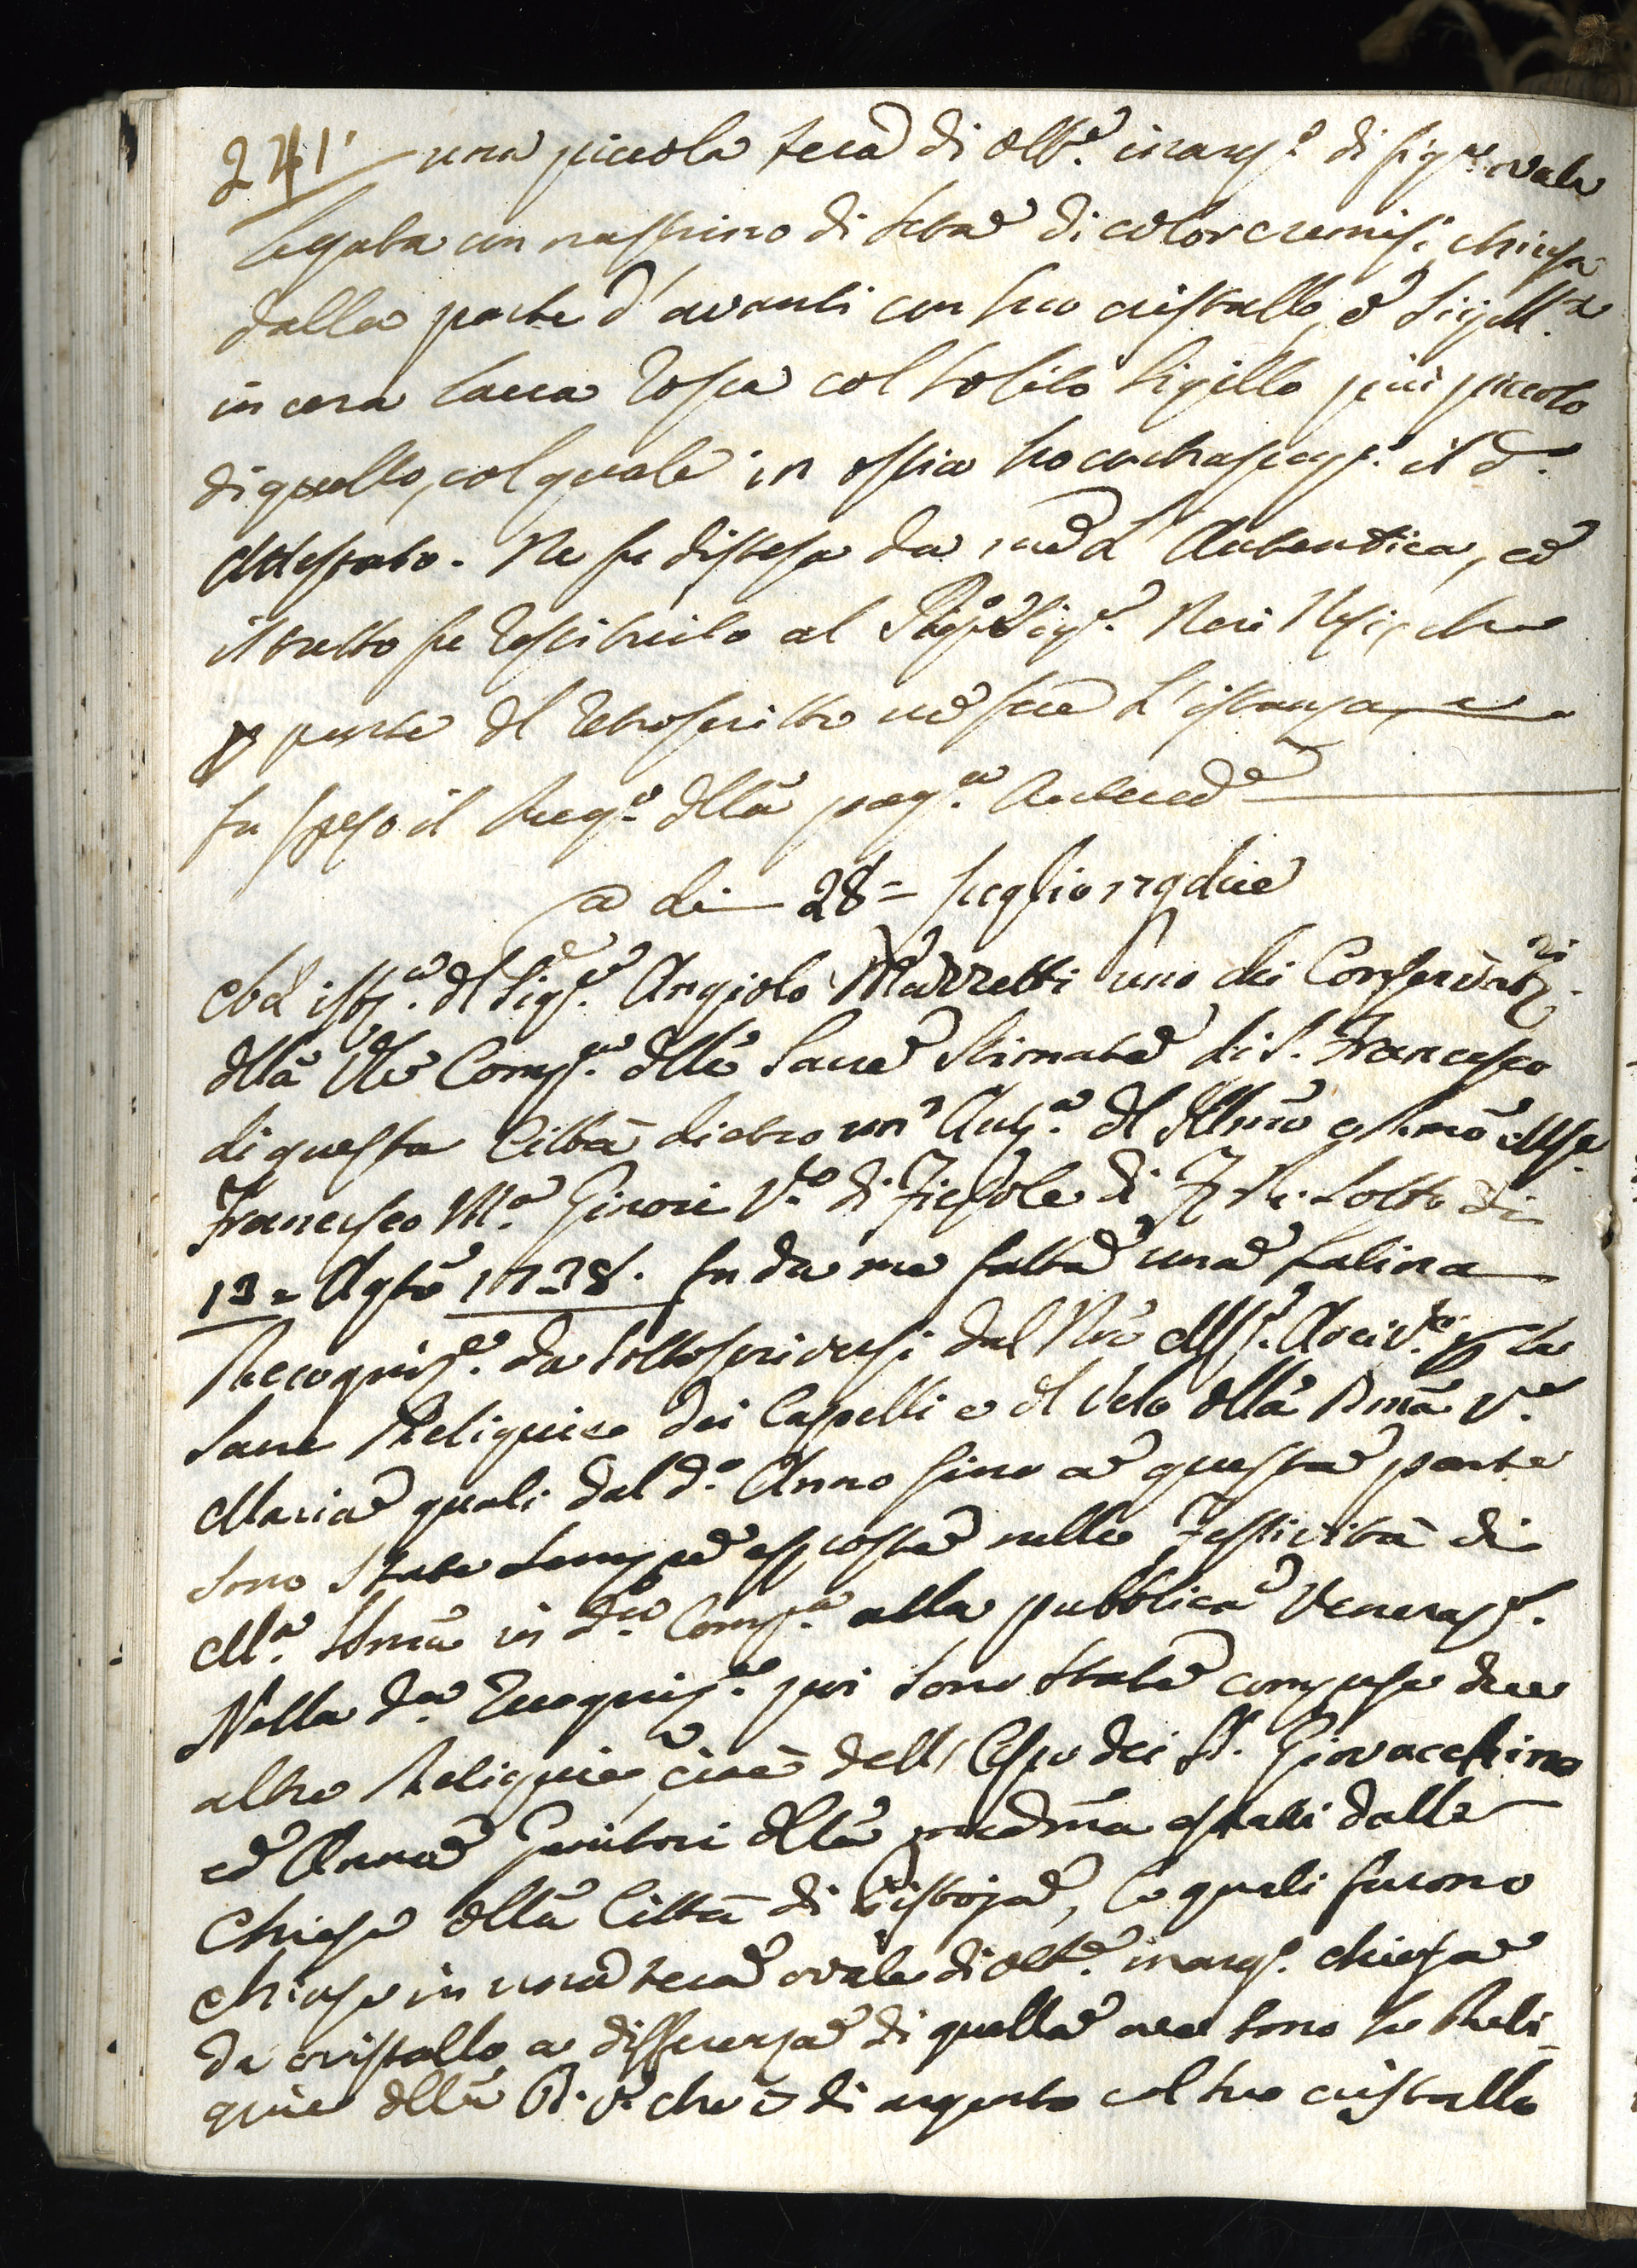 241. una piccola teca di ott.e inarg.o di fig.ra ovale
legata con nastrino di seta di color cremisi, chiusa
dalla parte d'avanti con suo cristallo, e sigill.ta
in cera lacca rossa col solito sigillo più piccolo
di quello, col quale in ostia ho contrasseg.o il d.o
Attestato. Ne fu distesa da me l'Autentica, ed
il tutto fu restituito al Sig.r Neri Nesi, che
p parte del retroscritto ne fece l'istanza, e
fu speso il seg.o della pag.a anteced.e
a di 28 = luglio 179due
Ad ist.a del Sig.r Angiolo Mazzetti uno dei Conservat.ri
della Ven Comp.a delle Sacre Stimate di S. Francesco
di questa Città dietro un'Aut.a del Illmo e Rmo Msr.
Francesco M.a Ginori V.o di Fiesole di F. R. sotto di
13 = Agto 1738. fu da me fatta una latina
Recogniz.e da sottoscriversi dal Nro Msr. Arciv.o p le
Sacre Reliquie dei Capelli e del Velo della Bma V.e
Maria quali dal d.o Anno sino a questa parte
sono state sempre esposte nelle Festività di
M.a SSma in d.a Comp.a alla pubblica Veneraz.e.
Nella d.a recogniz.e poi sono state comprese due
altre Reliquie, cioè dell'Ossa dei SS. Giovacchino
ed Anna Genitori della medma estratti dalle
Chiese della Città di Pistoja, le quali furono
chiuse in una teca ovale di ott.e inarg.o chiusa
da cristallo, a differenza di quella ove sono le Reli-
quie della B. V. che è di argento col suo cristallo